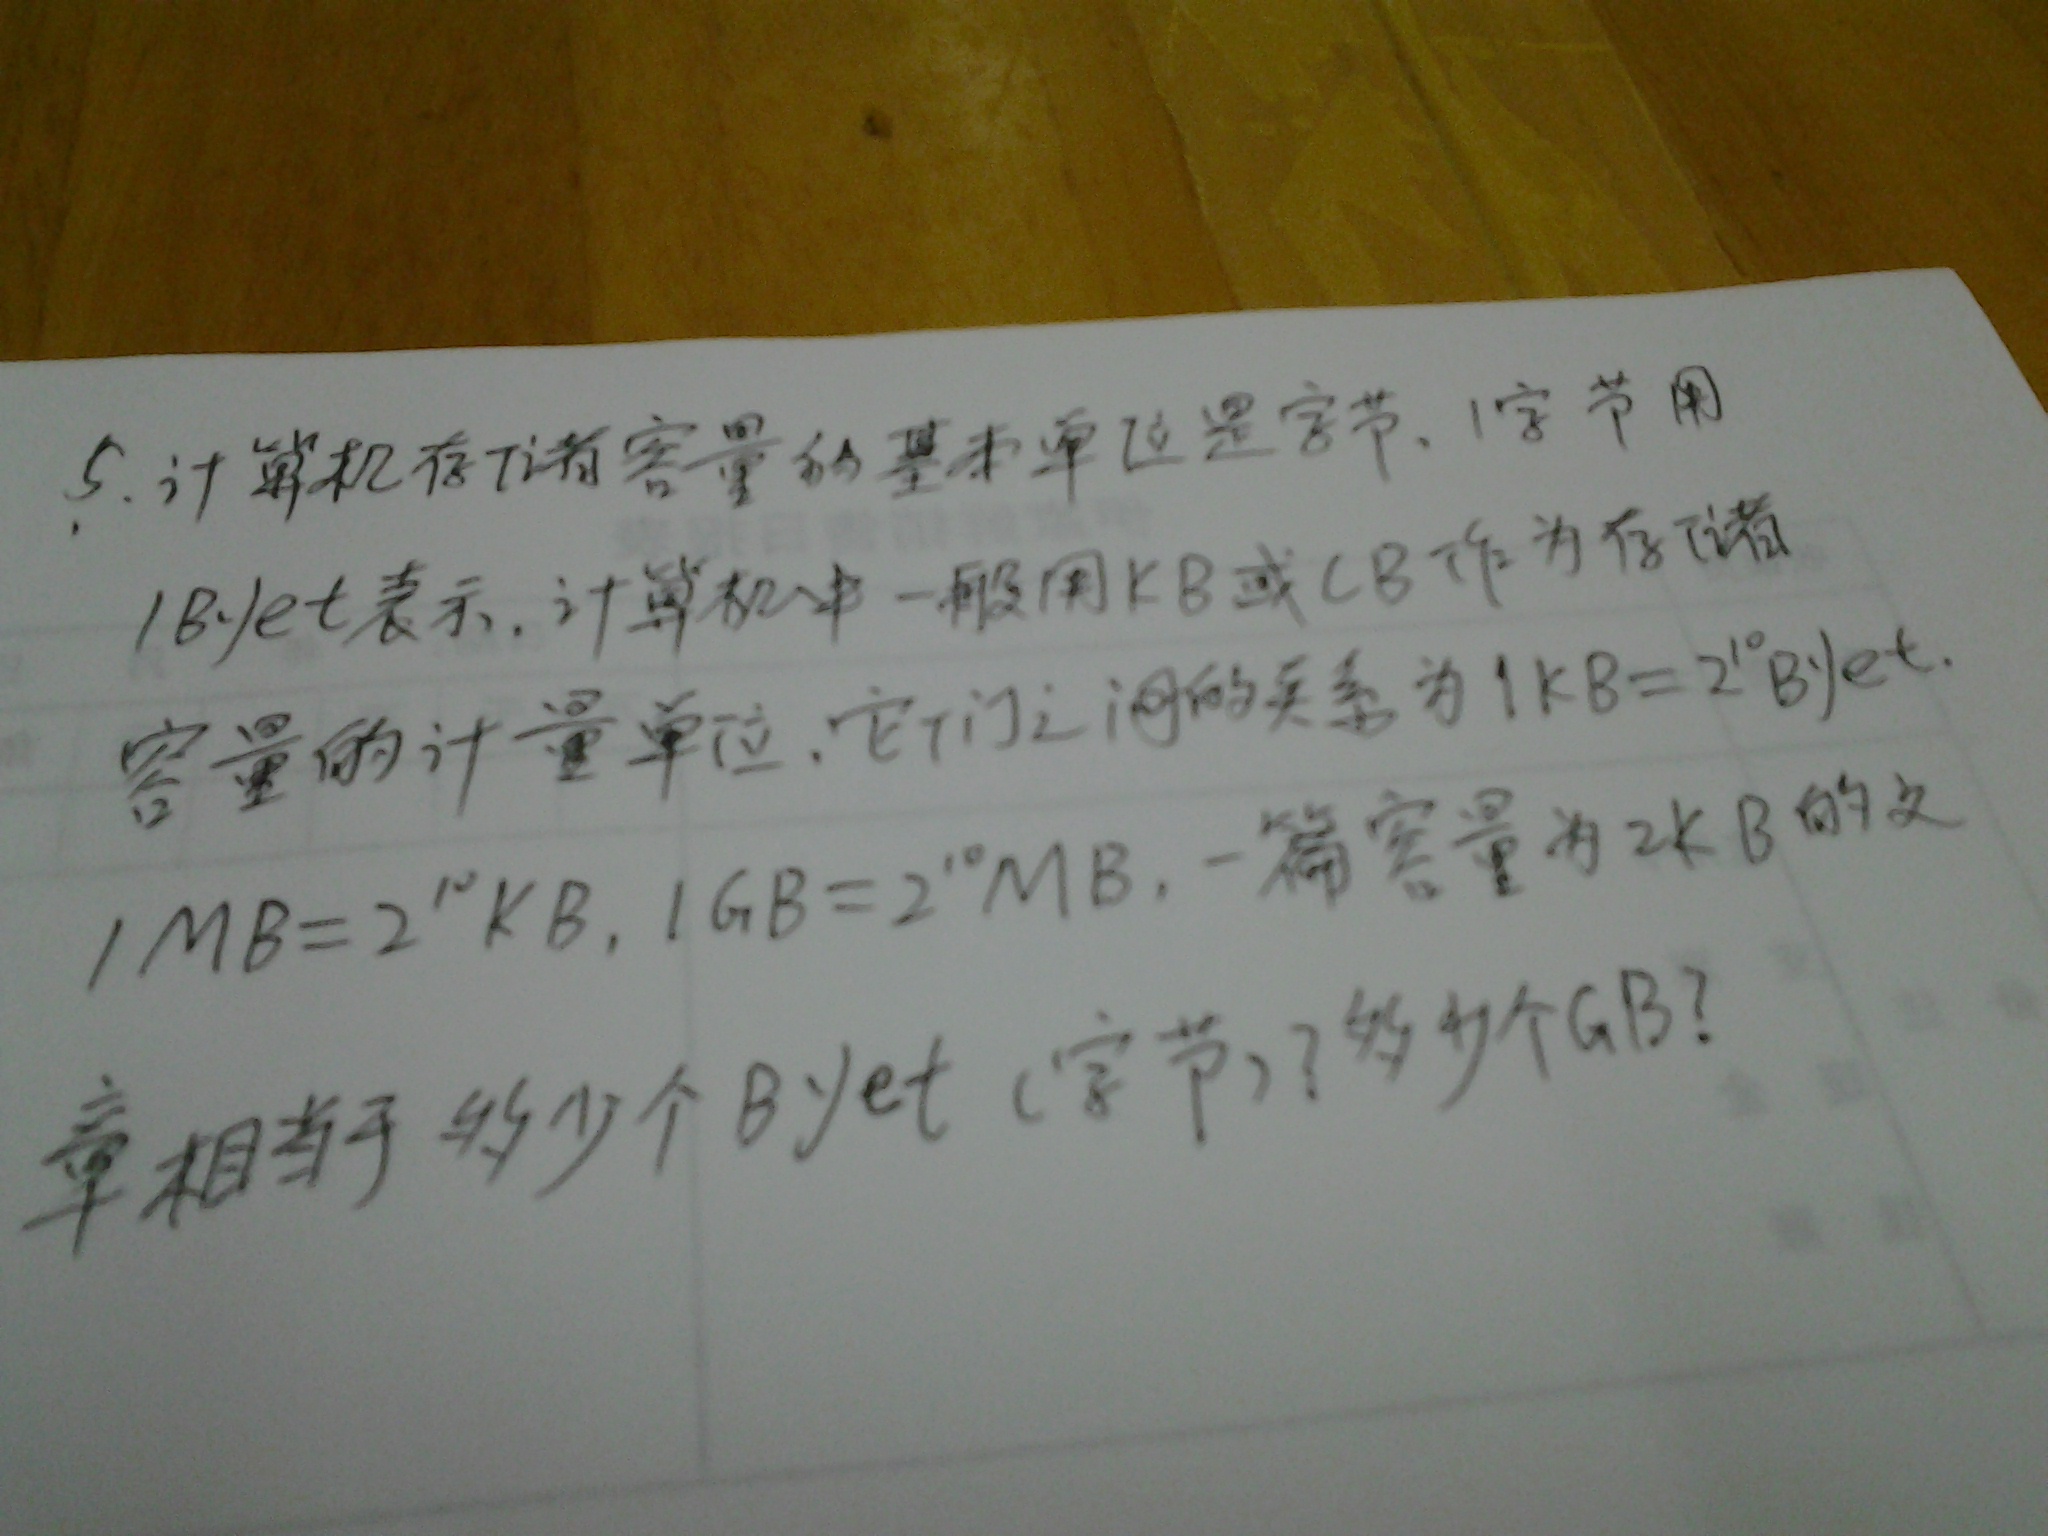 5.计算机存储容量的基本单位是字节、1字节用
1Byet表示.计算机中一般用KB或CB作为存储
容量的计量单位.它们之间的关系为1KB=2¹⁰Byet.
1MB=2¹⁰KB,1GB=2¹⁰MB,一篇容量为2KB的文
章相当于多少个Byet(字节)?多少个GB?